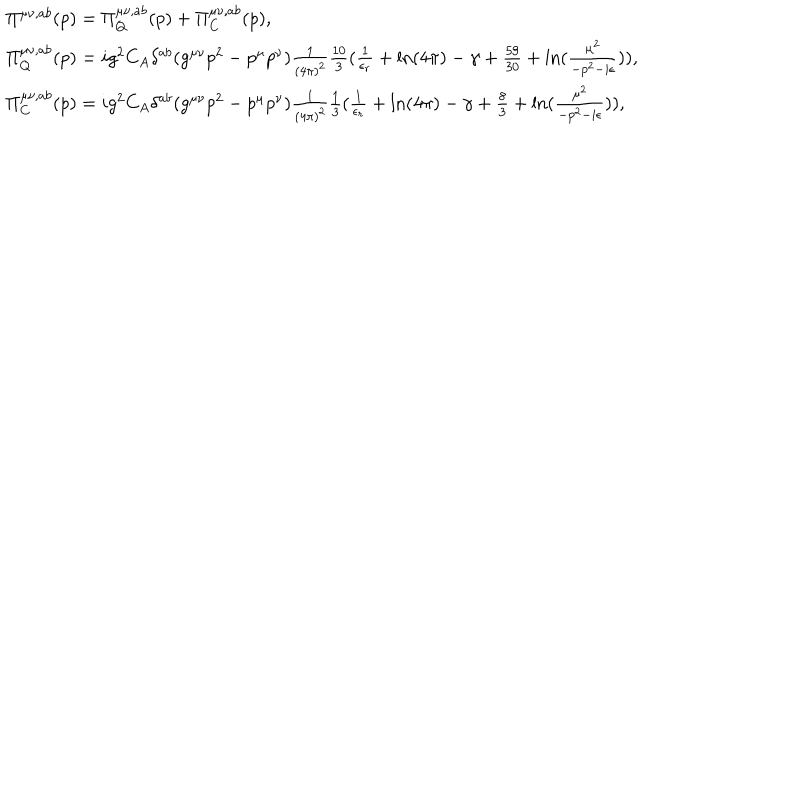 Π^{μν,ab}(p) = Π_Q^{μν,ab}(p) + Π_C^{μν,ab}(p),
Π_Q^{μν,ab}(p) = ig^2 C_A δ^{ab}(g^{μν}p^2 − p^μ p^ν) \frac{1}{(4π)^2} \frac{10}{3} (\frac{1}{ϵ_r} + ln(4π) − γ + \frac{59}{30} + ln(\frac{μ^2}{−p^2−iϵ})),
Π_C^{μν,ab}(p) = ig^2 C_A δ^{ab}(g^{μν}p^2 − p^μ p^ν) \frac{1}{(4π)^2} \frac{1}{3} (\frac{1}{ϵ_r} + ln(4π) − γ + \frac{8}{3} + ln(\frac{μ^2}{−p^2−iϵ})),